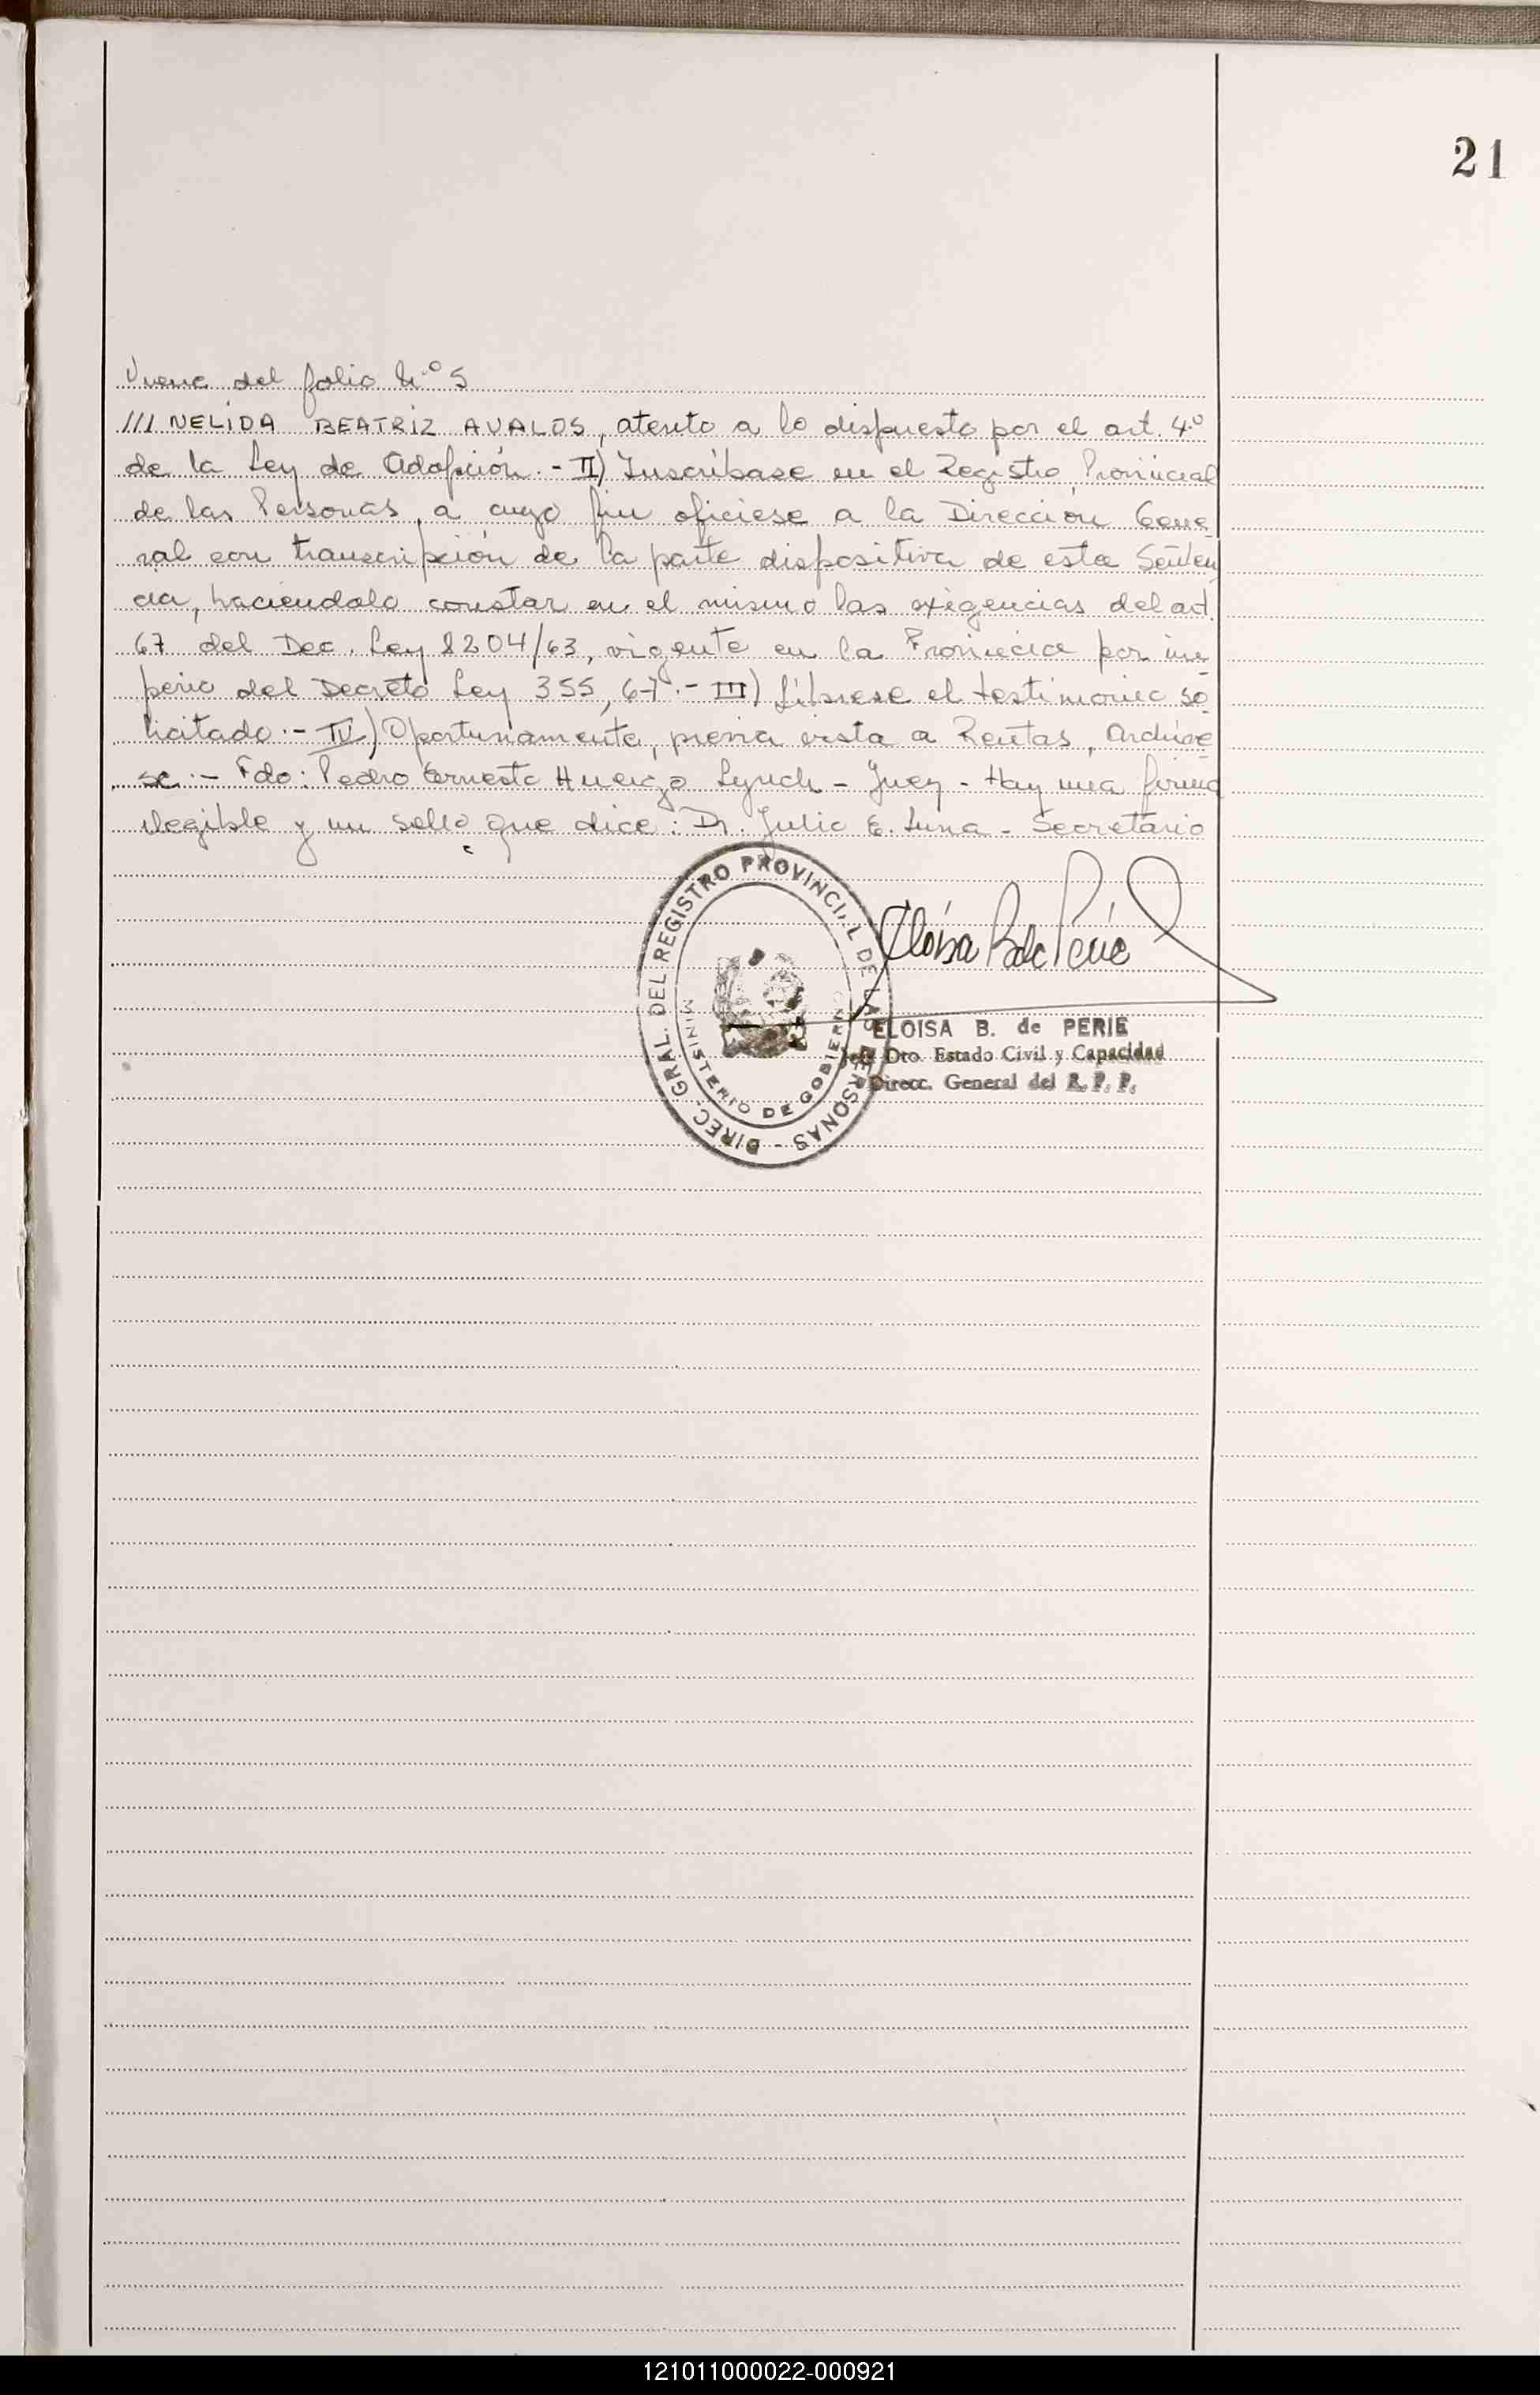 21
Viene del folio N.º 5
/// NELIDA BEATRIZ AVALOS, atento a lo dispuesto por el art. 4º
de la Ley de Adopción.- II) Inscríbase en el Registro Provincial
de las Personas, a cuyo fin oficiese a la Dirección Gene
ral con transcripción de la parte dispositiva de esta Senten
cia, haciéndolo constar en el mismo las exigencias del art.
67 del Dec. Ley 8204/63, vigente en la Provincia por im
perio del Decreto Ley 355, 67.- III) Líbrese el testimonio so
licitado.- IV) Oportunamente, previa vista a Rentas, archíve
se.- Fdo: Pedro Ernesto Huergo Lynch - Juez - Hay una firma
ilegible y un sello que dice: Dr. Julio E. Luna - Secretario
DIREC. GRAL. DEL REGISTRO PROVINCI L DE LAS PERSONAS -
MINISTERIO DE GOBIERNO
ELOISA B. de PERIE
Jefe Dto. Estado Civil y Capacidad
Direcc. General del R. P. P.
121011000022-000921